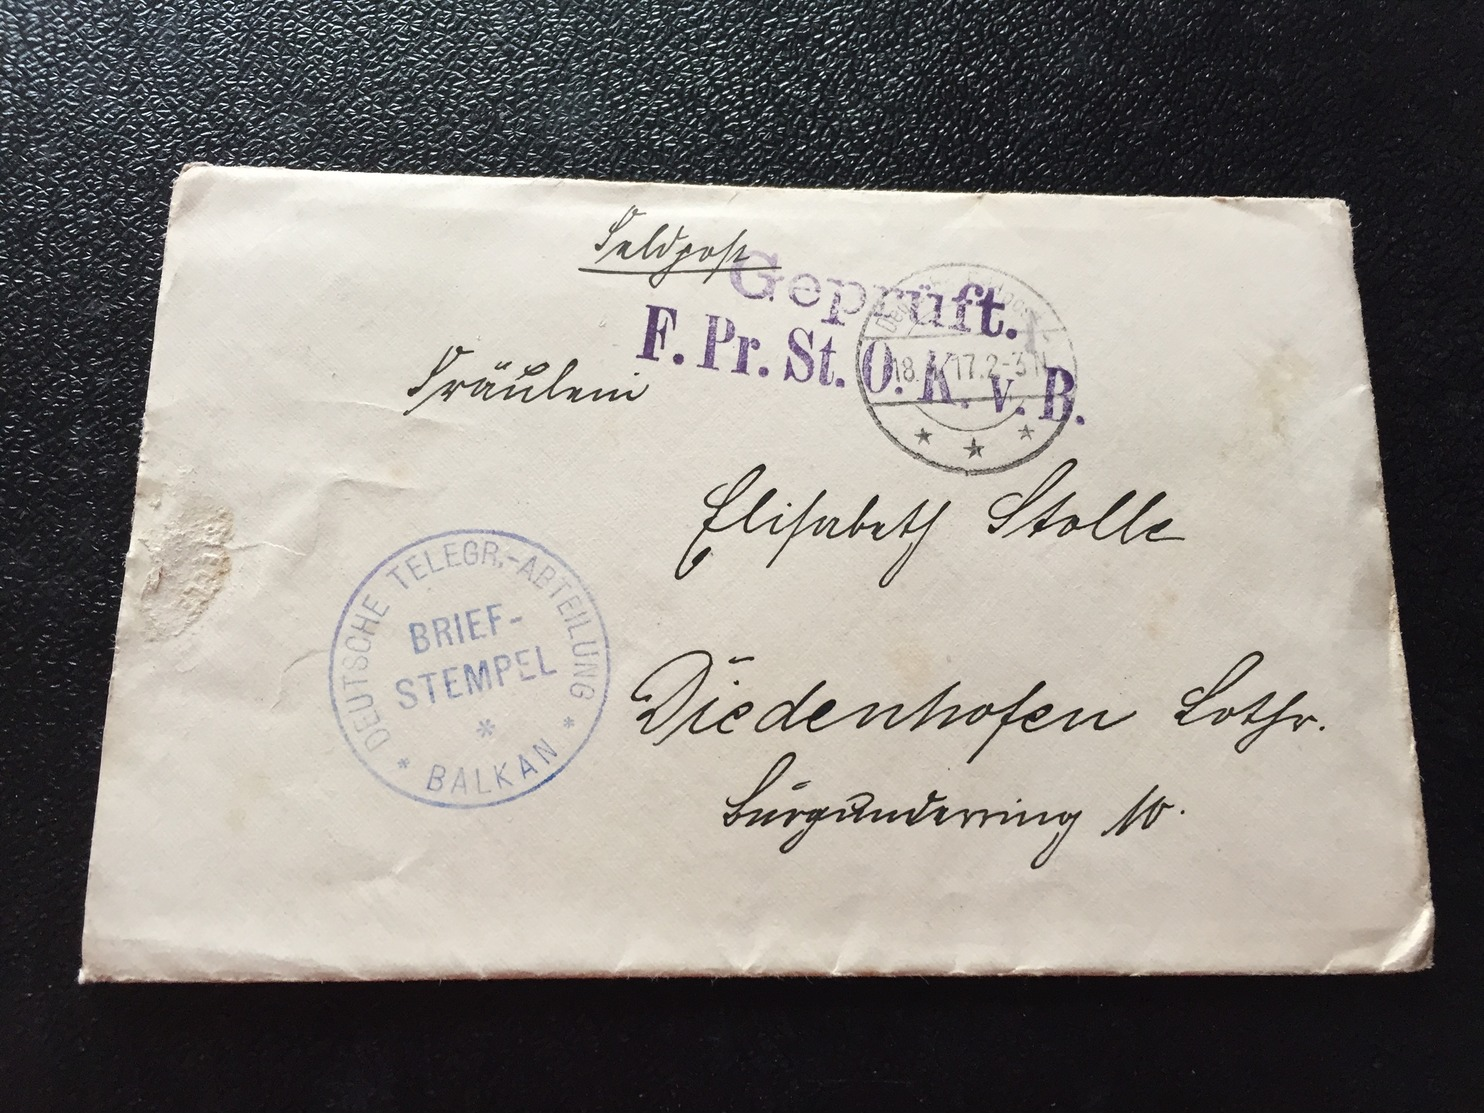 Feldpost
Geprüft.
F. Pr. St. O. K. v. B.
18. 17. 2-3 N
Fräulein
Elisabeth Stolle
DEUTSCHE TELEGR.-ABTEILUNG
BRIEF-
STEMPEL
* BALKAN *
Diedenhofen Lothr.
Burgunderring 10.